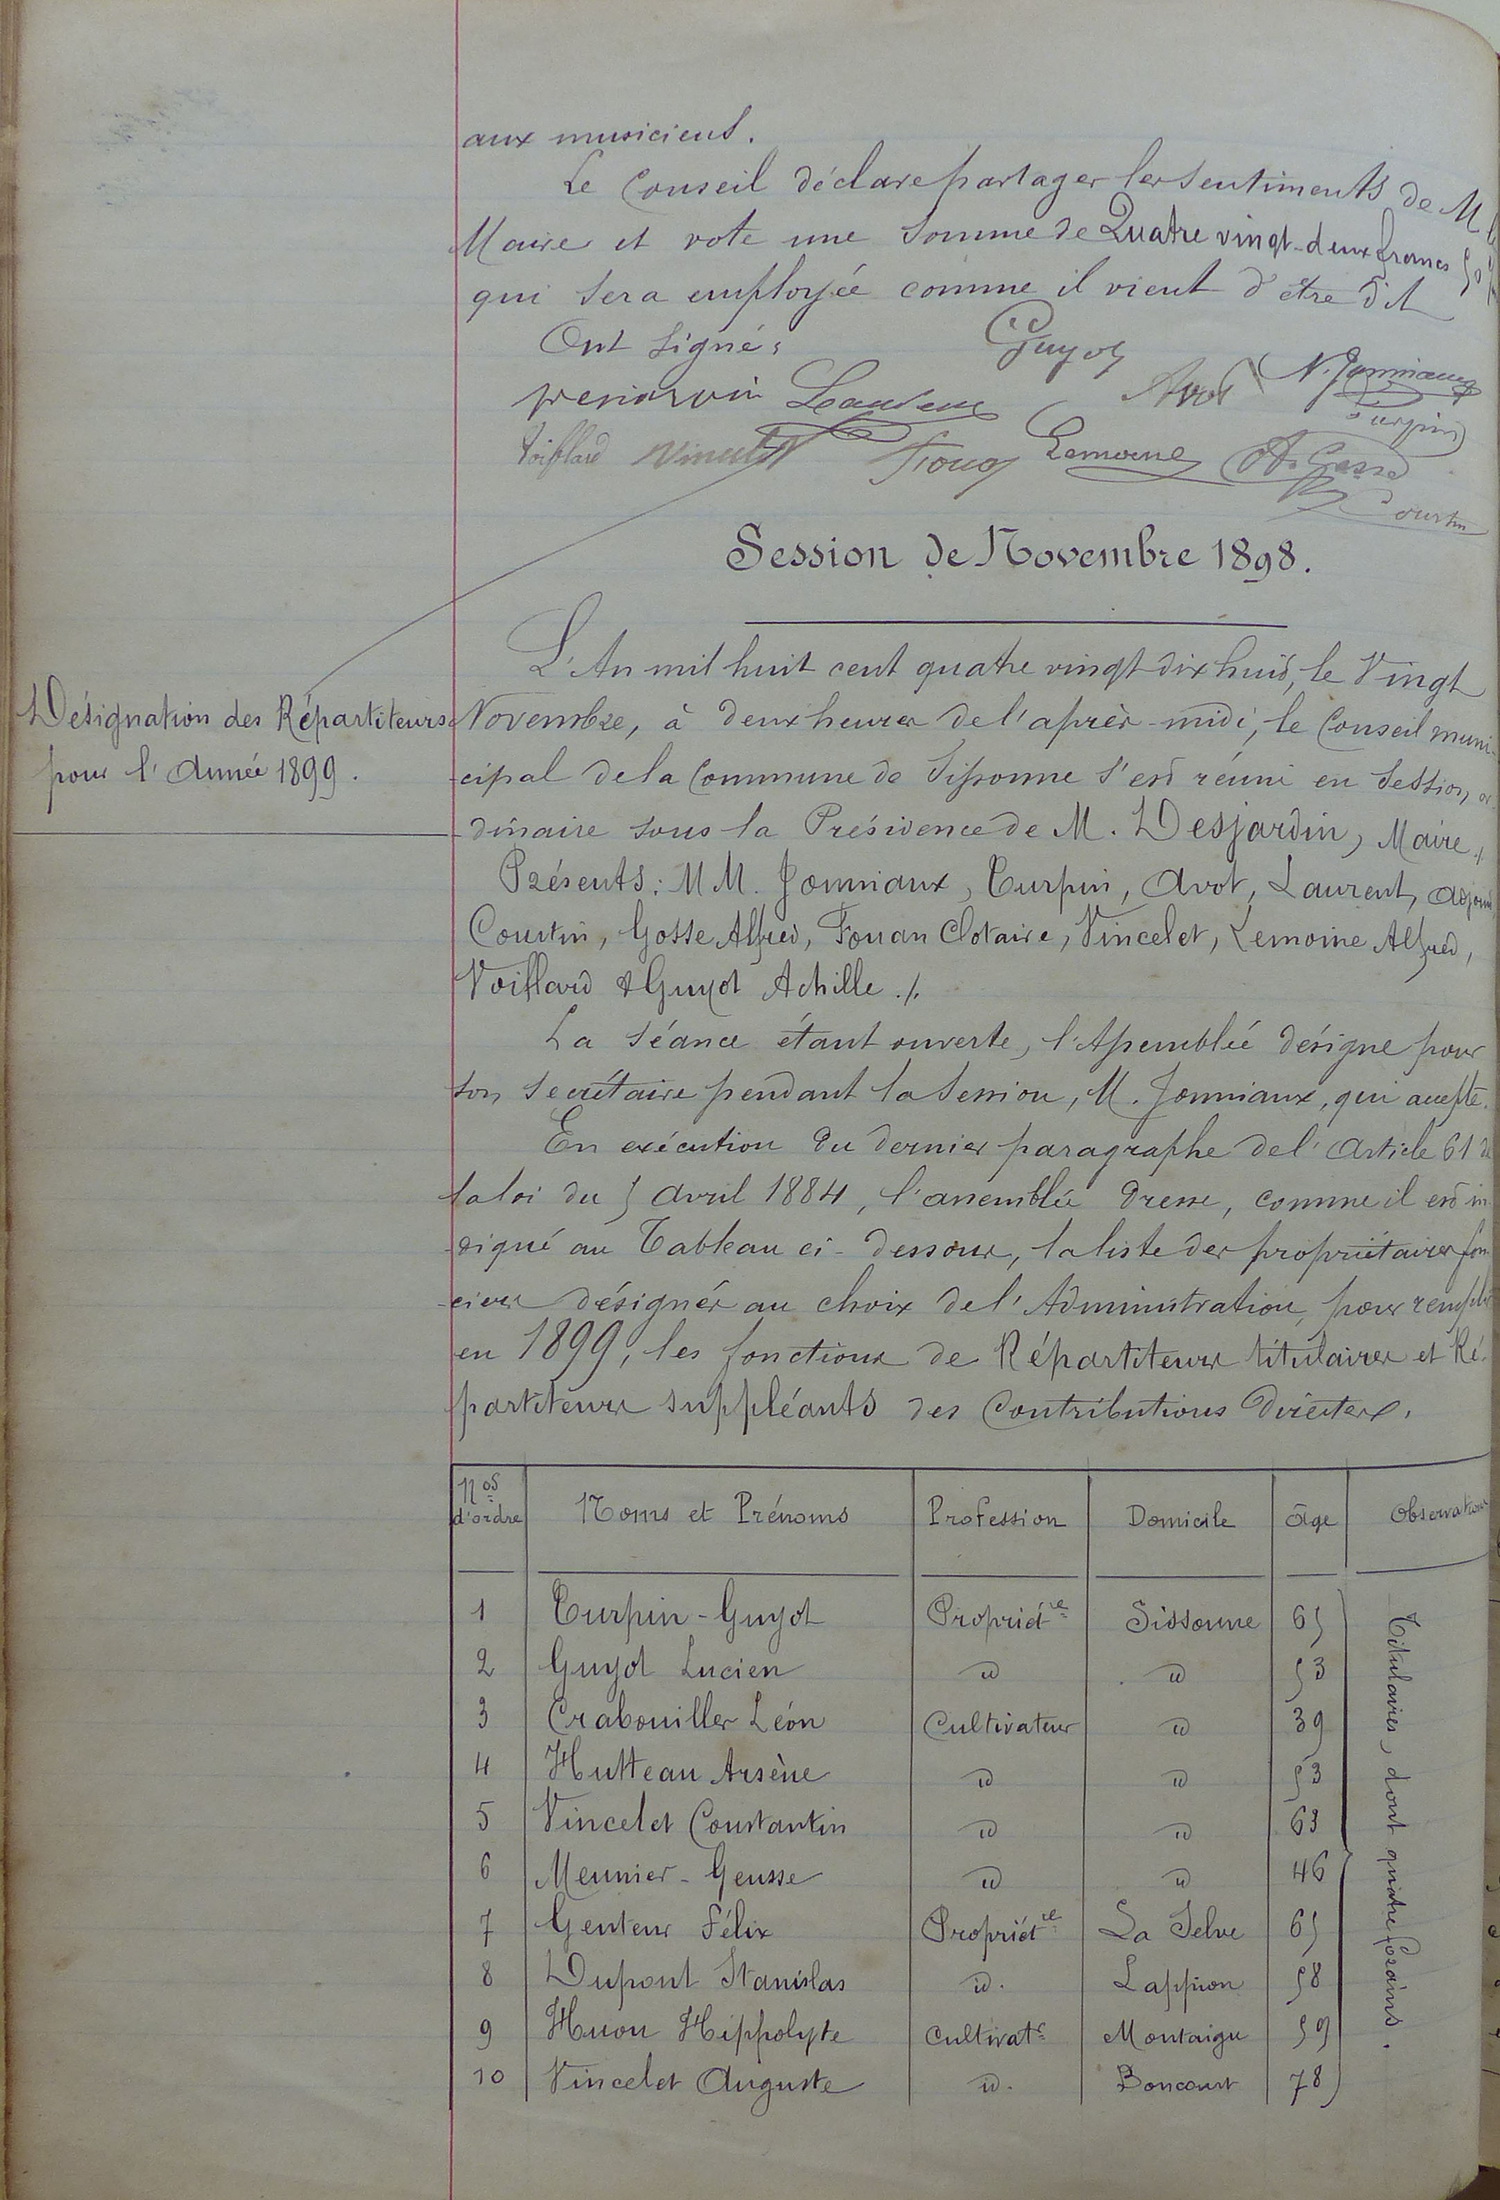 aux musiciens.
Le Conseil déclare partager les sentiments de M
Maire et vote une somme de Quatre vingt-deux francs
qui sera employée comme il vient d'être dit
Ont signé:
Guyot
Laurent Avot N. Jonniaux
Turpin
Voiflard Vincelet Fouan Lemoine A. Gosse
Courtin
Session de Novembre 1898.
L'An mil huit cent quatre vingt dix huit, le Vingt
Désignation des Répartiteurs
pour l'Année 1899.
Novembre, à deux heures de l'après-midi, le Conseil muni-
-cipal de la Commune de Sissonne s'est réuni en Session, or-
-dinaire sous la Présidence de M. Desjardin, Maire./.
Présents: MM. Jonniaux, Turpin, Avot, Laurent, adjoint
Courtin, Gosse Alfred, Fouan Clotaire, Vincelet, Lemoine Alfred,
Voiflard & Guyot Achille ./.
La séance étant ouverte, l'Assemblée désigne pour
son Secrétaire pendant la Session, M. Jonniaux, qui accepte.
En exécution du dernier paragraphe de l'Article 61 de
la loi du 5 Avril 1884, l'assemblée dresse, comme il est in-
-diqué au Tableau ci-dessous, la liste des propriétaires fon-
-ciers désignés au choix de l'Administration, pour remplir
en 1899, les fonctions de Répartiteurs titulaires et Ré-
partiteurs suppléants des Contributions directes.
Nos d'ordre Noms et Prénoms Profession Domicile âge Observations
1 Turpin-Guyot Propriétre Sissonne 65
2 Guyot Lucien id id 53
3 Crabouiller Léon Cultivateur id 39
4 Hutteau Arsène id id 53
5 Vincelet Constantin id id 63
6 Meunier-Geusse id id 46
7 Genteur Félix Propriétre La Selve 65
8 Dupont Stanislas id. Lappion 58
9 Huon Hippolyte Cultivatr Montaigu 59
10 Vincelet Auguste id. Boncourt 78
Titulaires, dont quatre forains.